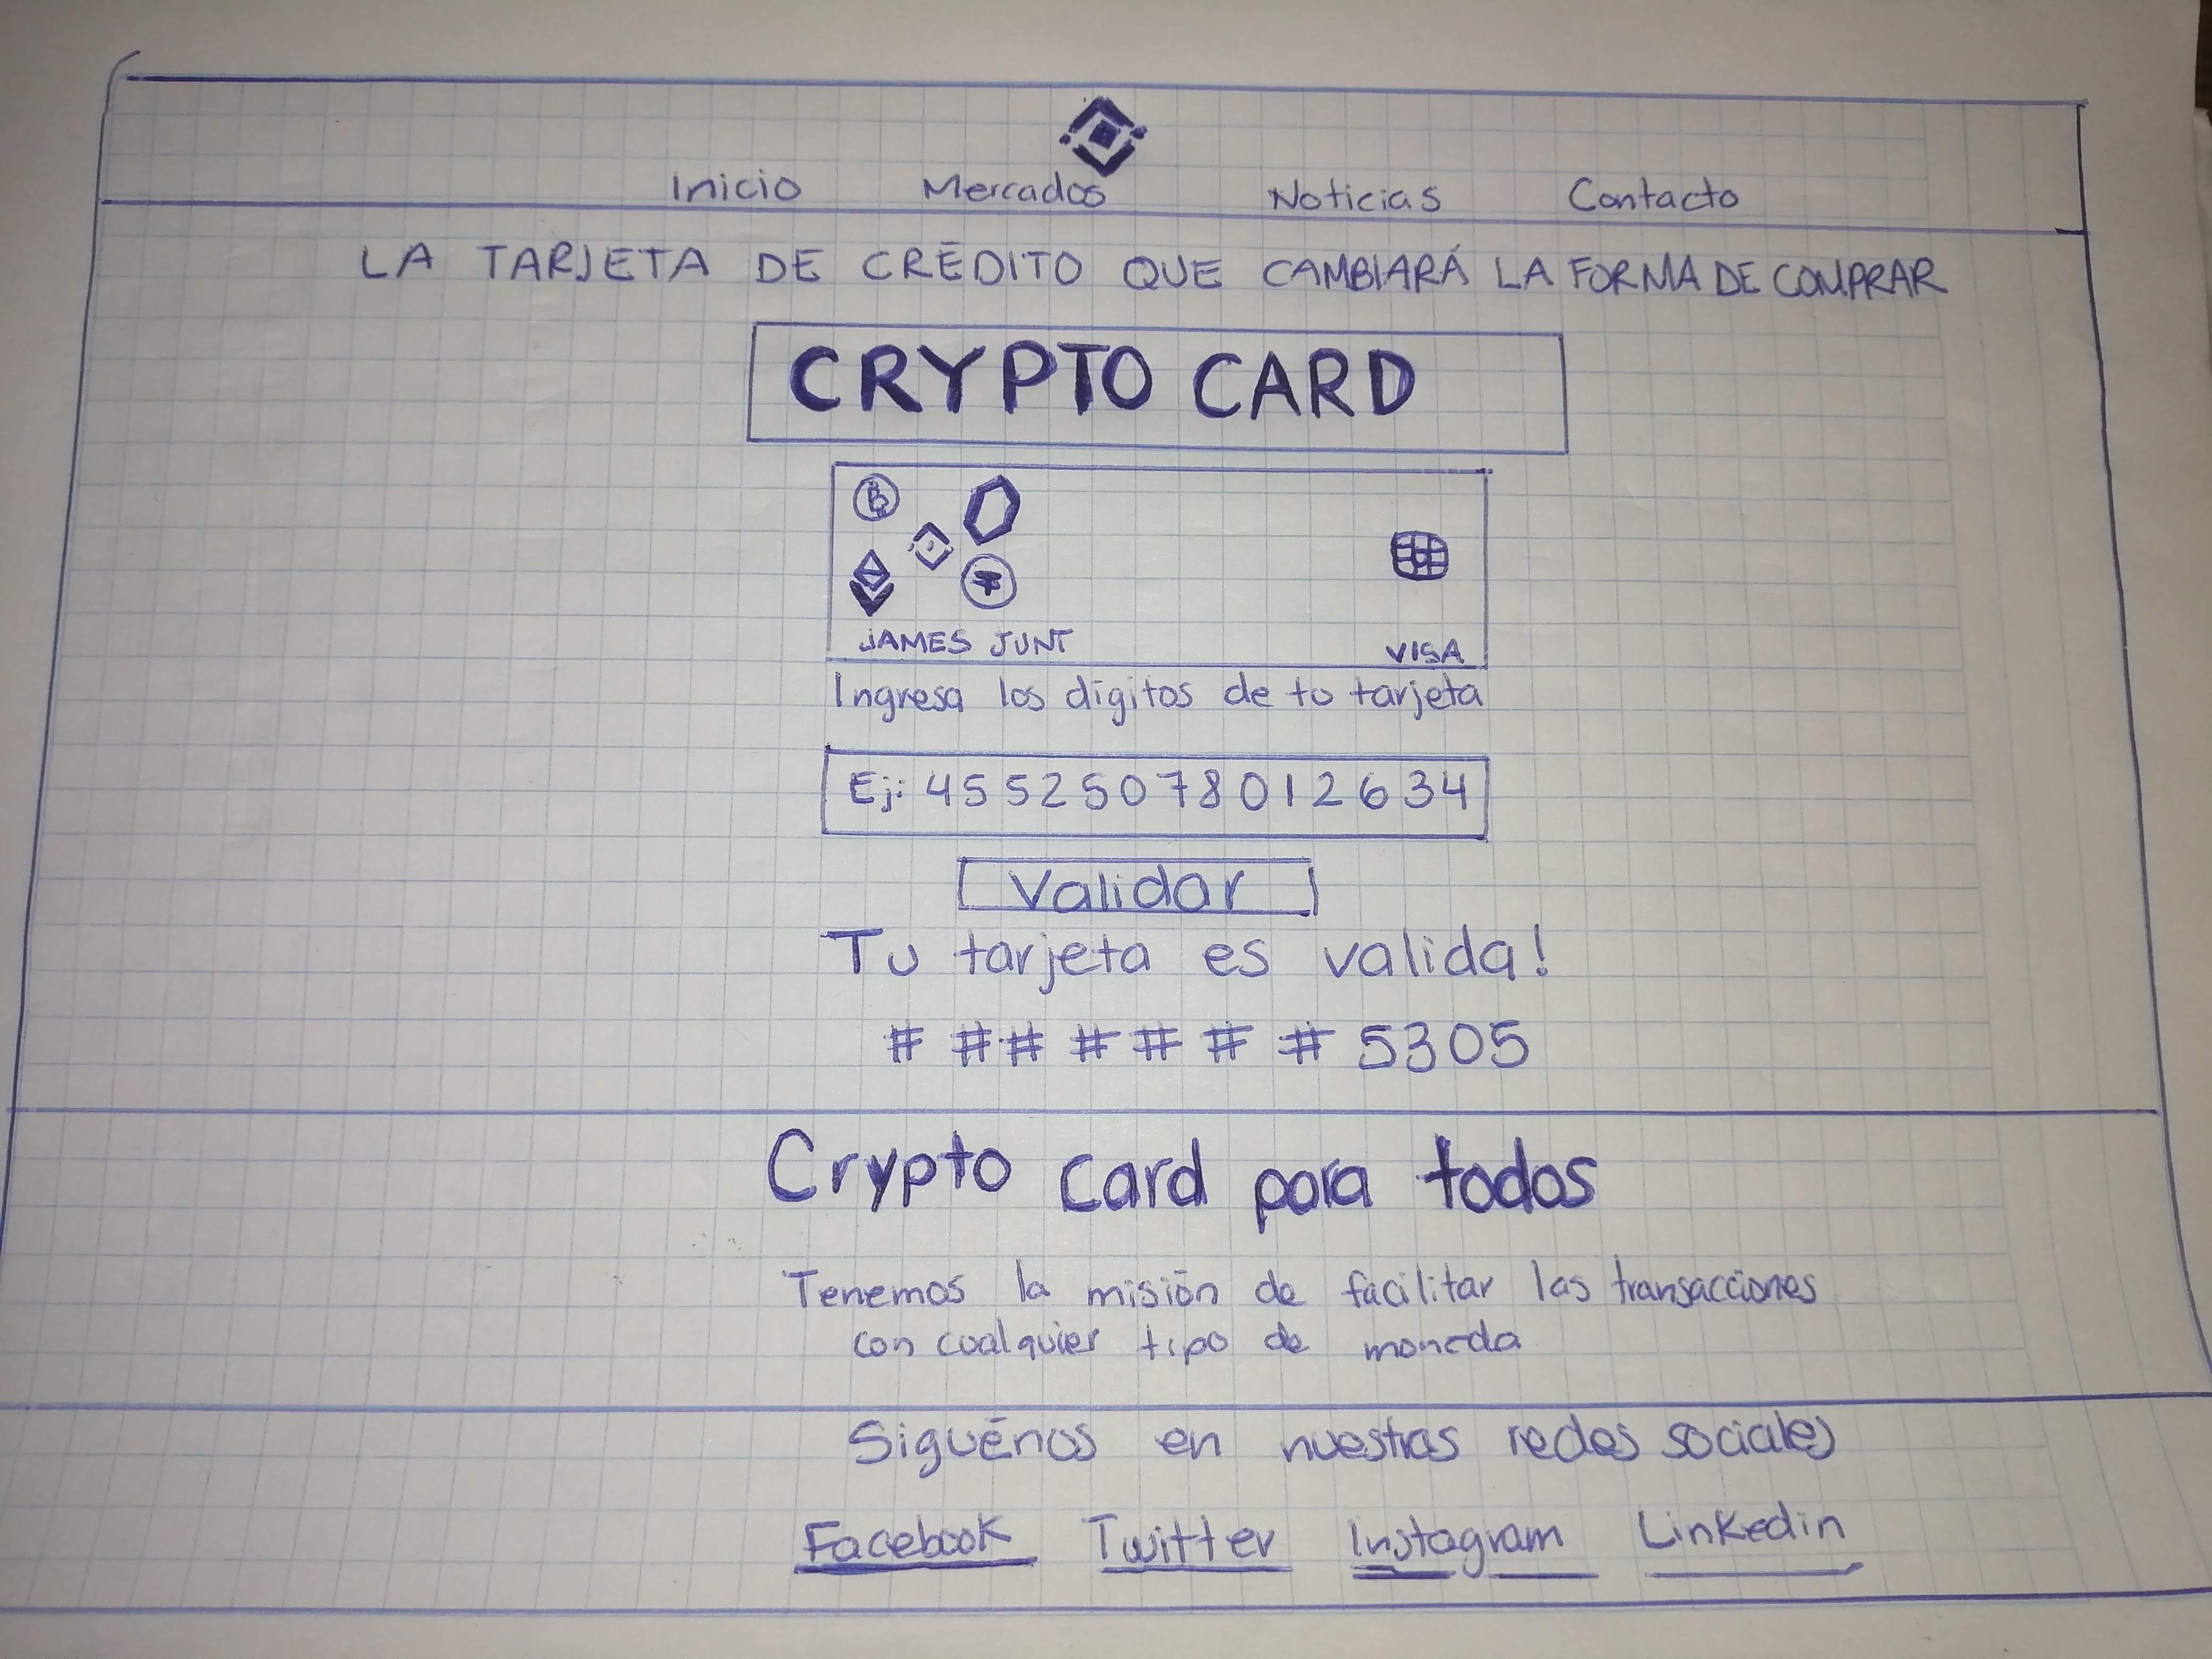 Inicio Mercados Noticias Contacto
LA TARJETA DE CRÉDITO QUE CAMBIARÁ LA FORMA DE COMPRAR
CRYPTO CARD
JAMES JUNT VISA
Ingresa los digitos de tu tarjeta
Ej: 45525078012634
Validar
Tu tarjeta es valida!
# # # # # # # 5305
Crypto card para todos
Tenemos la misión de facilitar las transacciones
con cualquier tipo de moneda
Siguénos en nuestras redes sociales
Facebook Twitter Instagram Linkedin